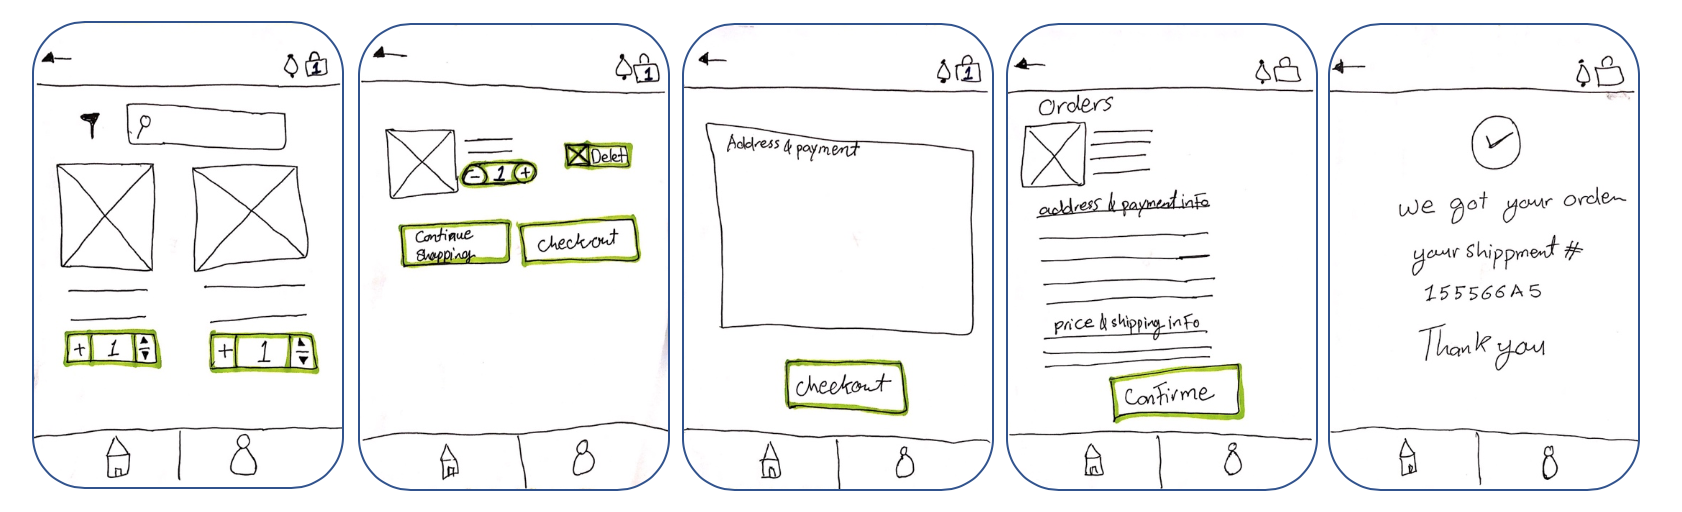 1
+ 1
+ 1
1
- 1 +
Delet
Continue
Shopping
checkout
1
Address & payment
checkout
Orders
address & payment info
price & shipping info
Confirme
we got your order
your shippment #
155566A5
Thank you